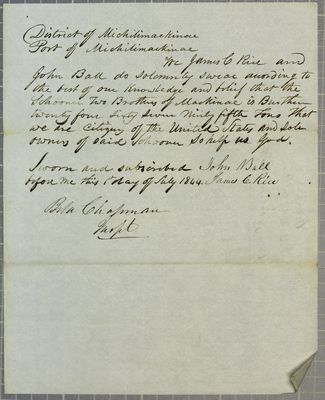 District of Michilimackinac
Port of Michilimackinac
We James C Rice and
John Ball do Solemnly swear acording to
the best of our Knowledge and belief that the
Schooner Two Brothers of Mackinac is Burthen
twenty four Sixty Seven Ninty fifth Tons that
we are Citizens of the United States and Sole
owners of Said Schooner So help us God.
Sworn and subscribed John Ball
before me this 1st day of July 1844. James C Rice
Bela Chapman
Inspt